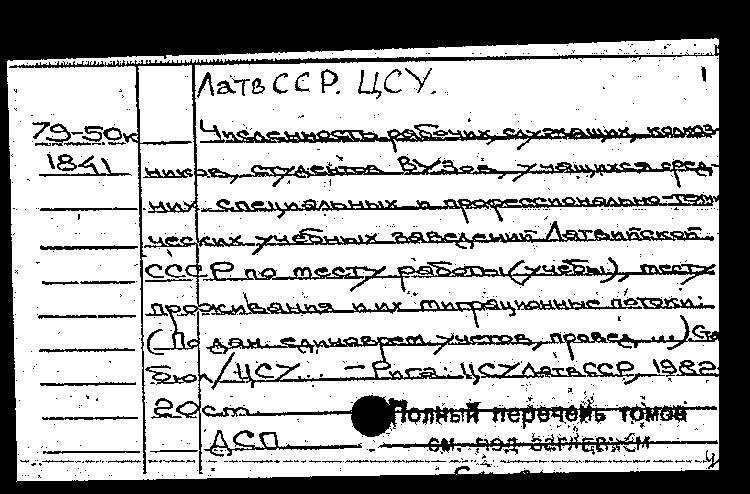 ЛатвССР. ЦСУ. 1
79-50к Численность рабочих, служащих, колхоз-
1841 ников, студентов ВУЗов, учащихся сред-
них специальных и профессионально-техни
ческих учебных заведений Латвийской
СССР по месту работы (учебы), месту
проживания и их миграционные потоки:
(По дан. единоврем. учетов, провед ...) Ста
бюл/ЦСУ... - Рига: ЦСУ ЛатвССР, 1982
20 см. Полный перечень томов
ДСП. см. под заглавием